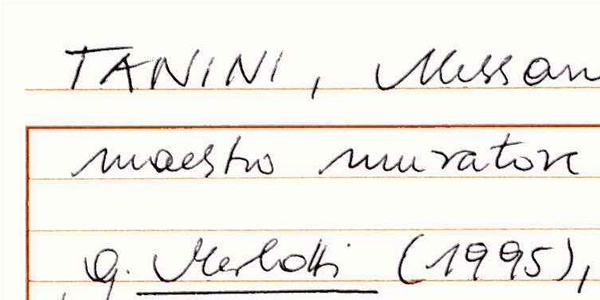 TANINI, Alessan
maestro muratore
g. Merlotti (1995),